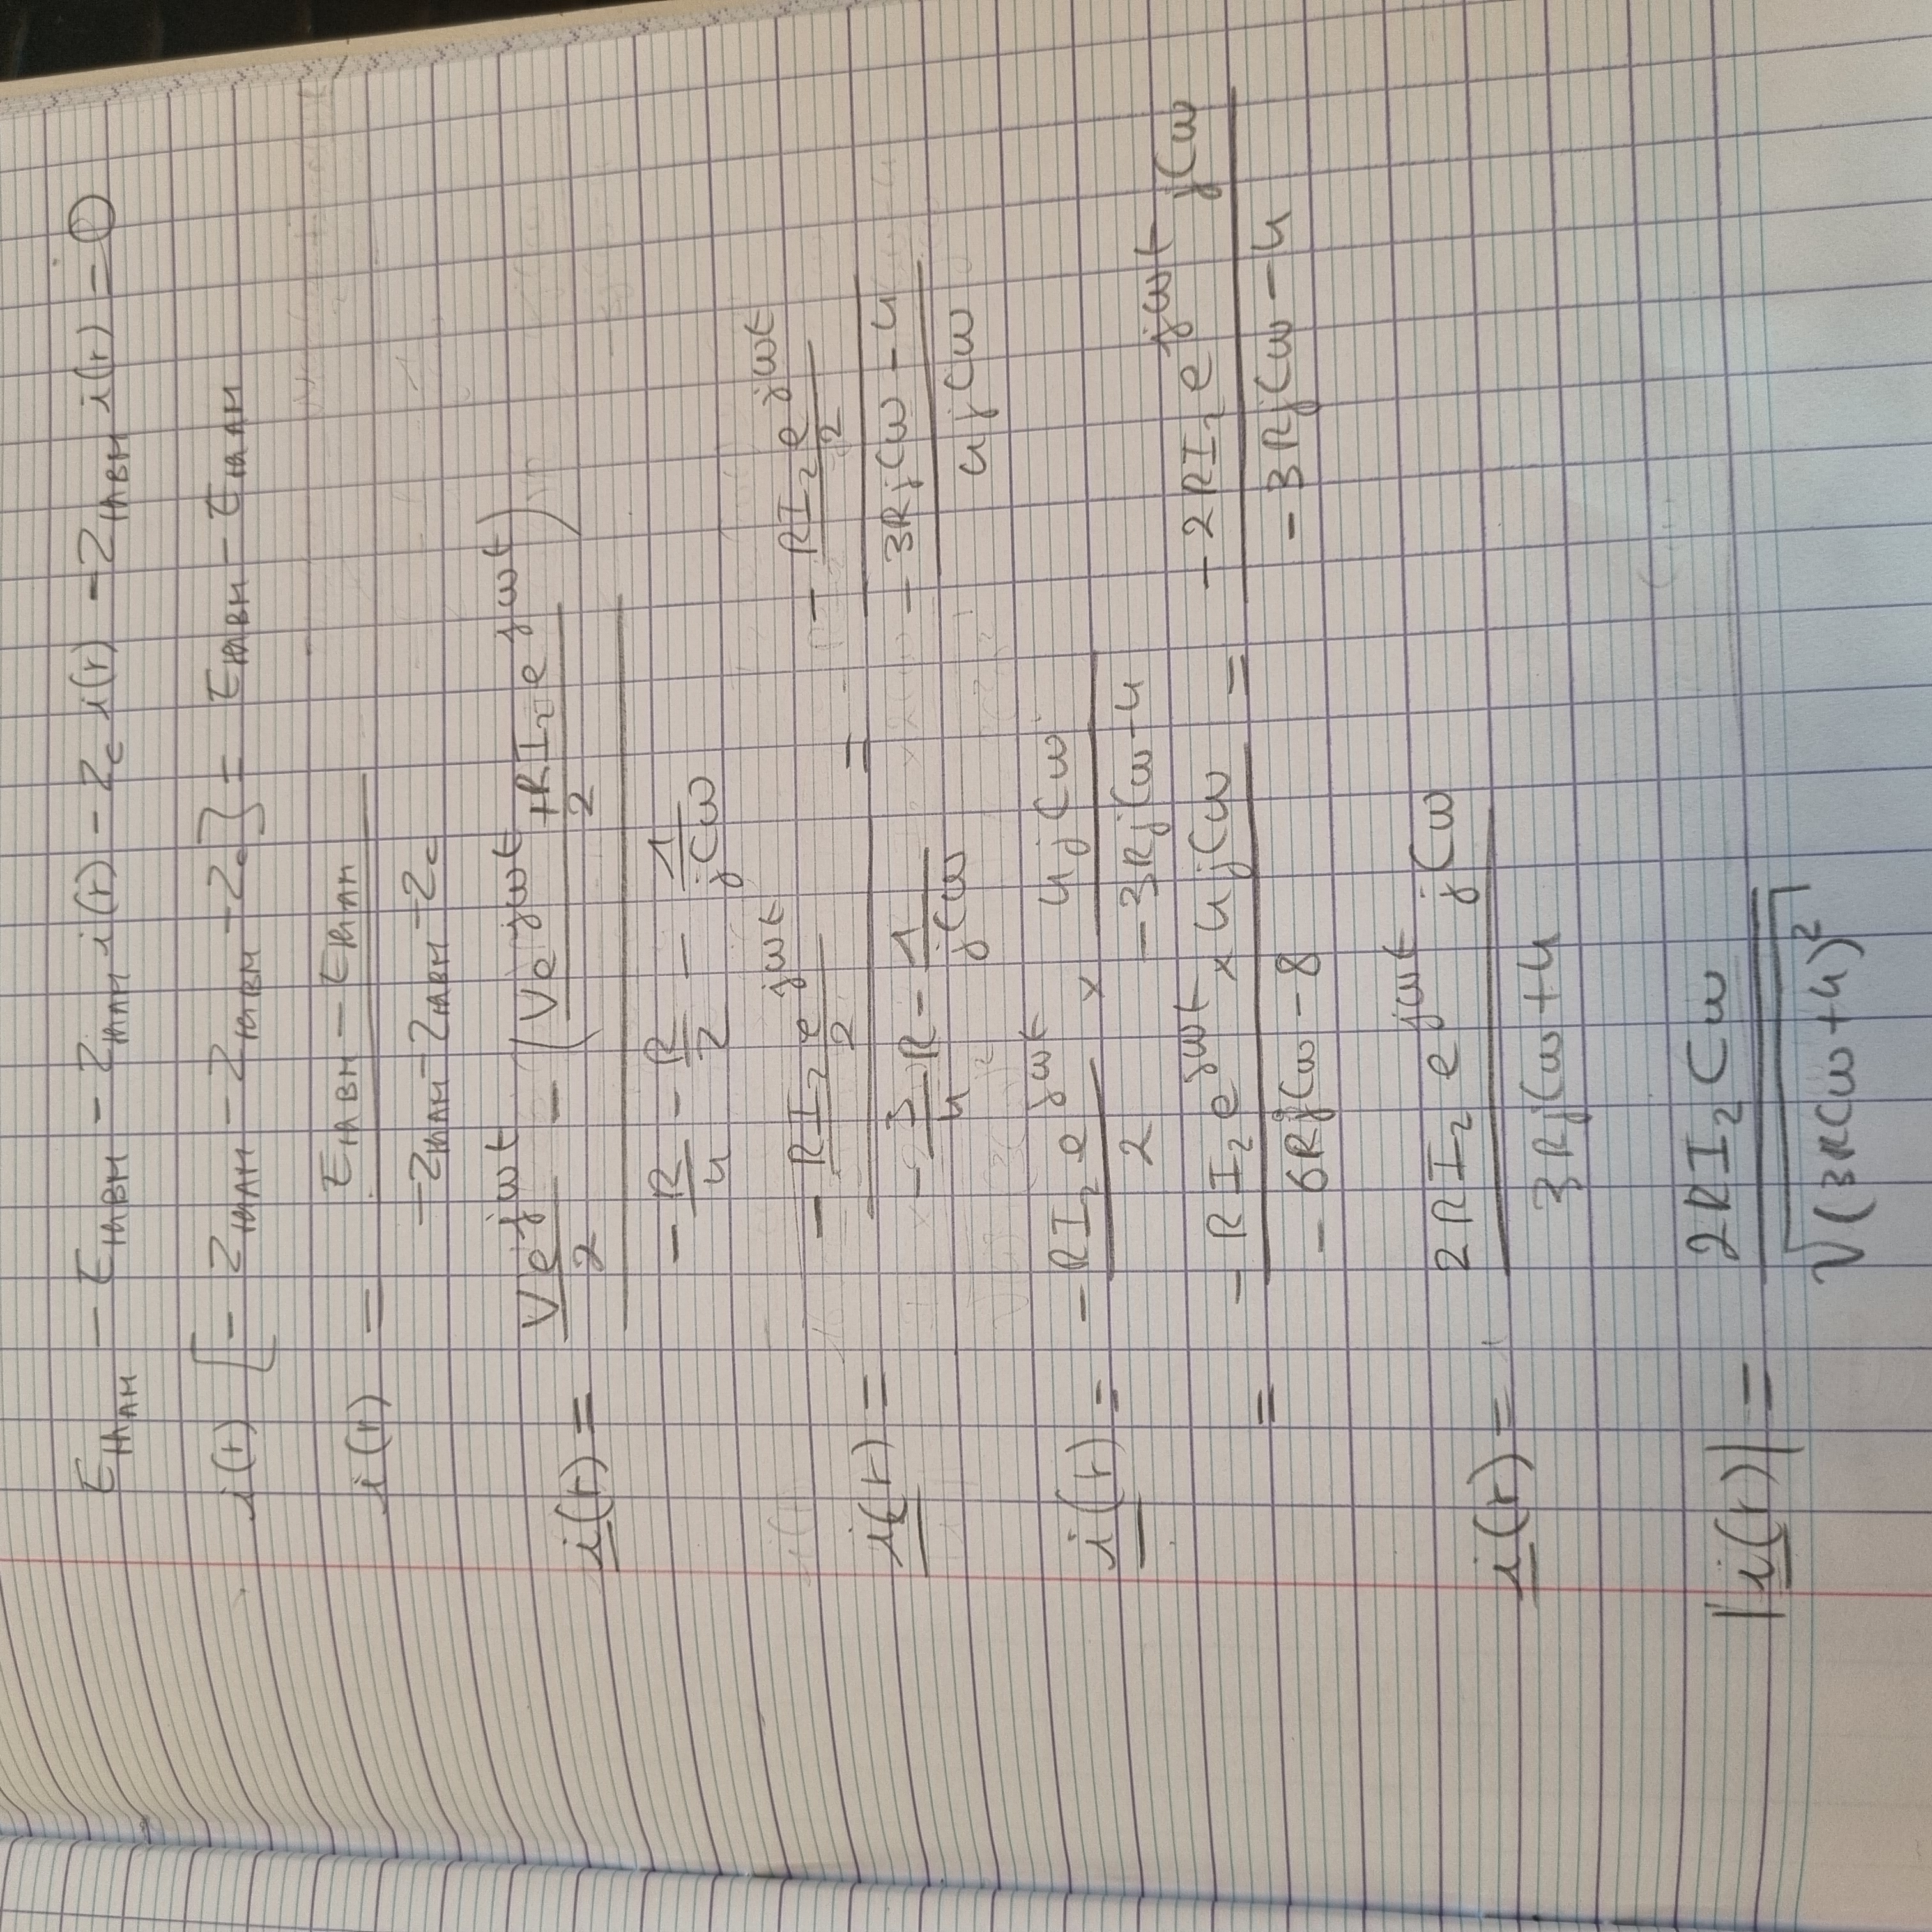 E_{th AM} - E_{th BM} - Z_{th AM} i(t) - Z_c i(t) - Z_{th BM} i(t) = 0
i(t) [- Z_{th AM} - Z_{th BM} - Z_c] = E_{th BM} - E_{th AM}
i(t) = \frac{E_{th BM} - E_{th AM}}{-Z_{th AM} - Z_{th BM} - Z_c}
i(t) = \frac{\frac{Ve^{jωt}}{2} - (\frac{Ve^{jωt} + RI_2 e^{jωt}}{2})}{-\frac{R}{4} - \frac{R}{2} - \frac{1}{jCω}}
i(t) = \frac{-\frac{RI_2 e^{jωt}}{2}}{-\frac{3}{4}R - \frac{1}{jCω}} = \frac{-\frac{RI_2 e^{jωt}}{2}}{\frac{-3RjCω - 4}{4jCω}}
i(t) = \frac{-RI_2 e^{jωt}}{2} × \frac{4jCω}{-3RjCω - 4}
= \frac{-RI_2 e^{jωt} × 4jCω}{-6RjCω - 8} = \frac{-2RI_2 e^{jωt} jCω}{-3RjCω - 4}
i(t) = \frac{2RI_2 e^{jωt} jCω}{3RjCω + 4}
|i(t)| = \frac{2RI_2Cω}{\sqrt{(3RCω + 4)^2}}